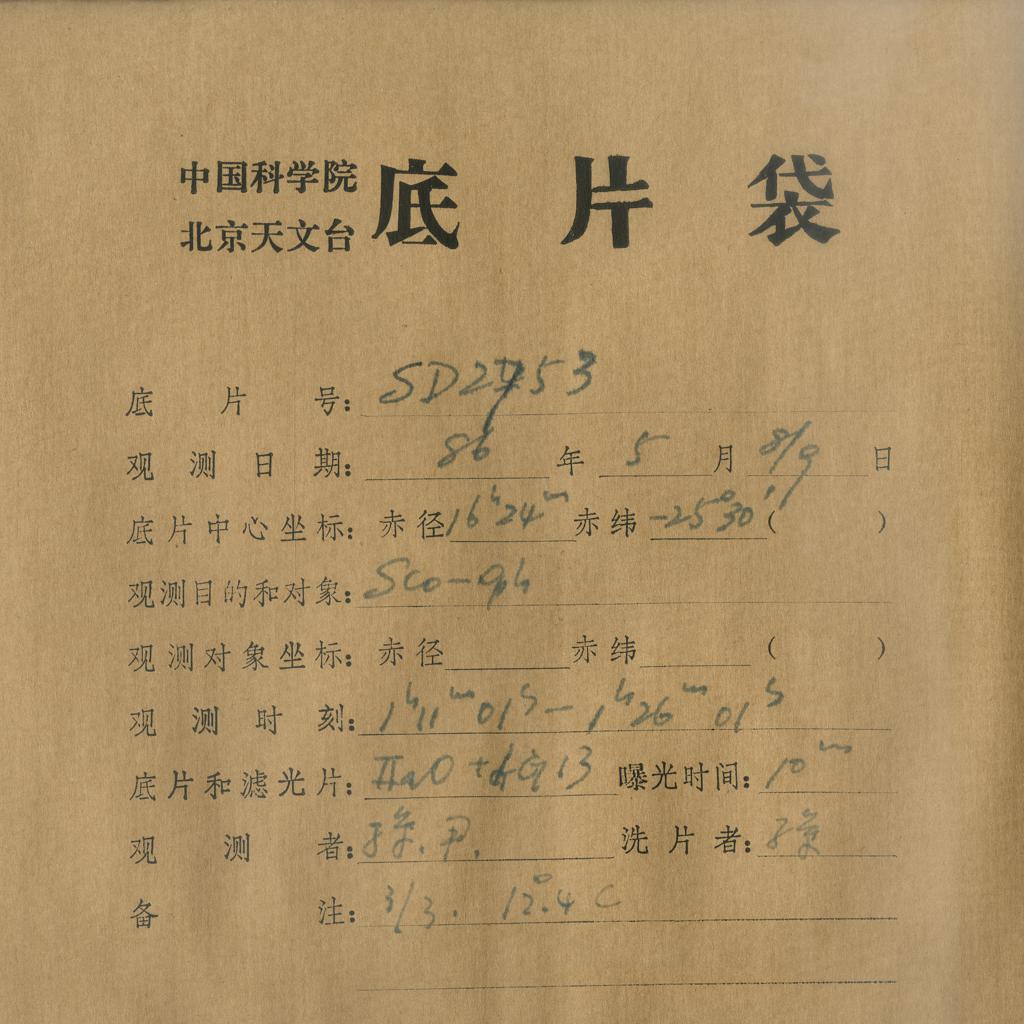 中国科学院
北京天文台
底片袋
底片号: SD2453
观测日期: 86年 5月 8/9日
底片中心坐标: 赤径 16h24m 赤纬 -25°30′ ( )
观测目的和对象: Sco-oph
观测对象坐标: 赤径 赤纬 ( )
观测时刻: 1h11m01s - 1h26m01s
底片和滤光片: IIaO + 13 曝光时间: 10m
观测者: 尹. 洗片者:
备注: 3/3. 12°.4 C